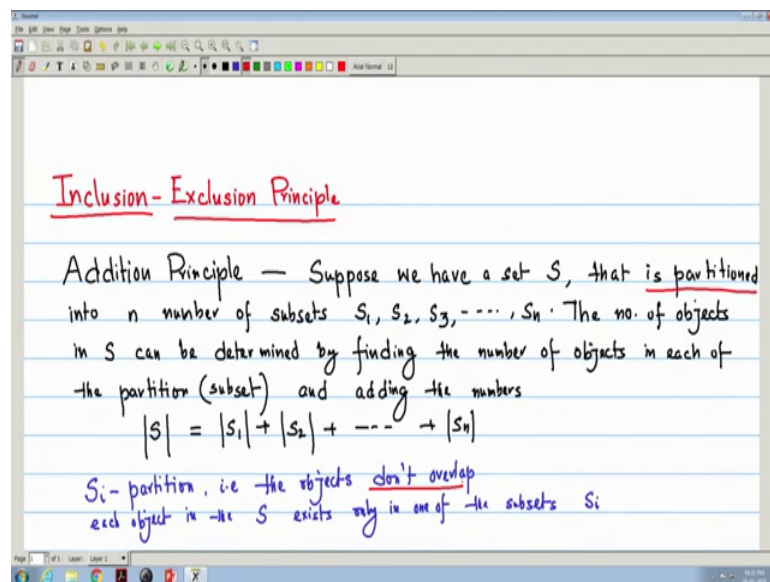 File Edit View Page Tools Options Help
Arial Normal 12
Inclusion - Exclusion Principle
Addition Principle — Suppose we have a set S, that is partitioned
into n number of subsets S1, S2, S3, ----, Sn. The no. of objects
in S can be determined by finding the number of objects in each of
the partition (subset) and adding the numbers
|S| = |S1| + |S2| + --- + |Sn|
Si - partition, i.e the objects don't overlap
each object in the S exists only in one of the subsets Si
Page 1 of 1 Layer: Layer 1